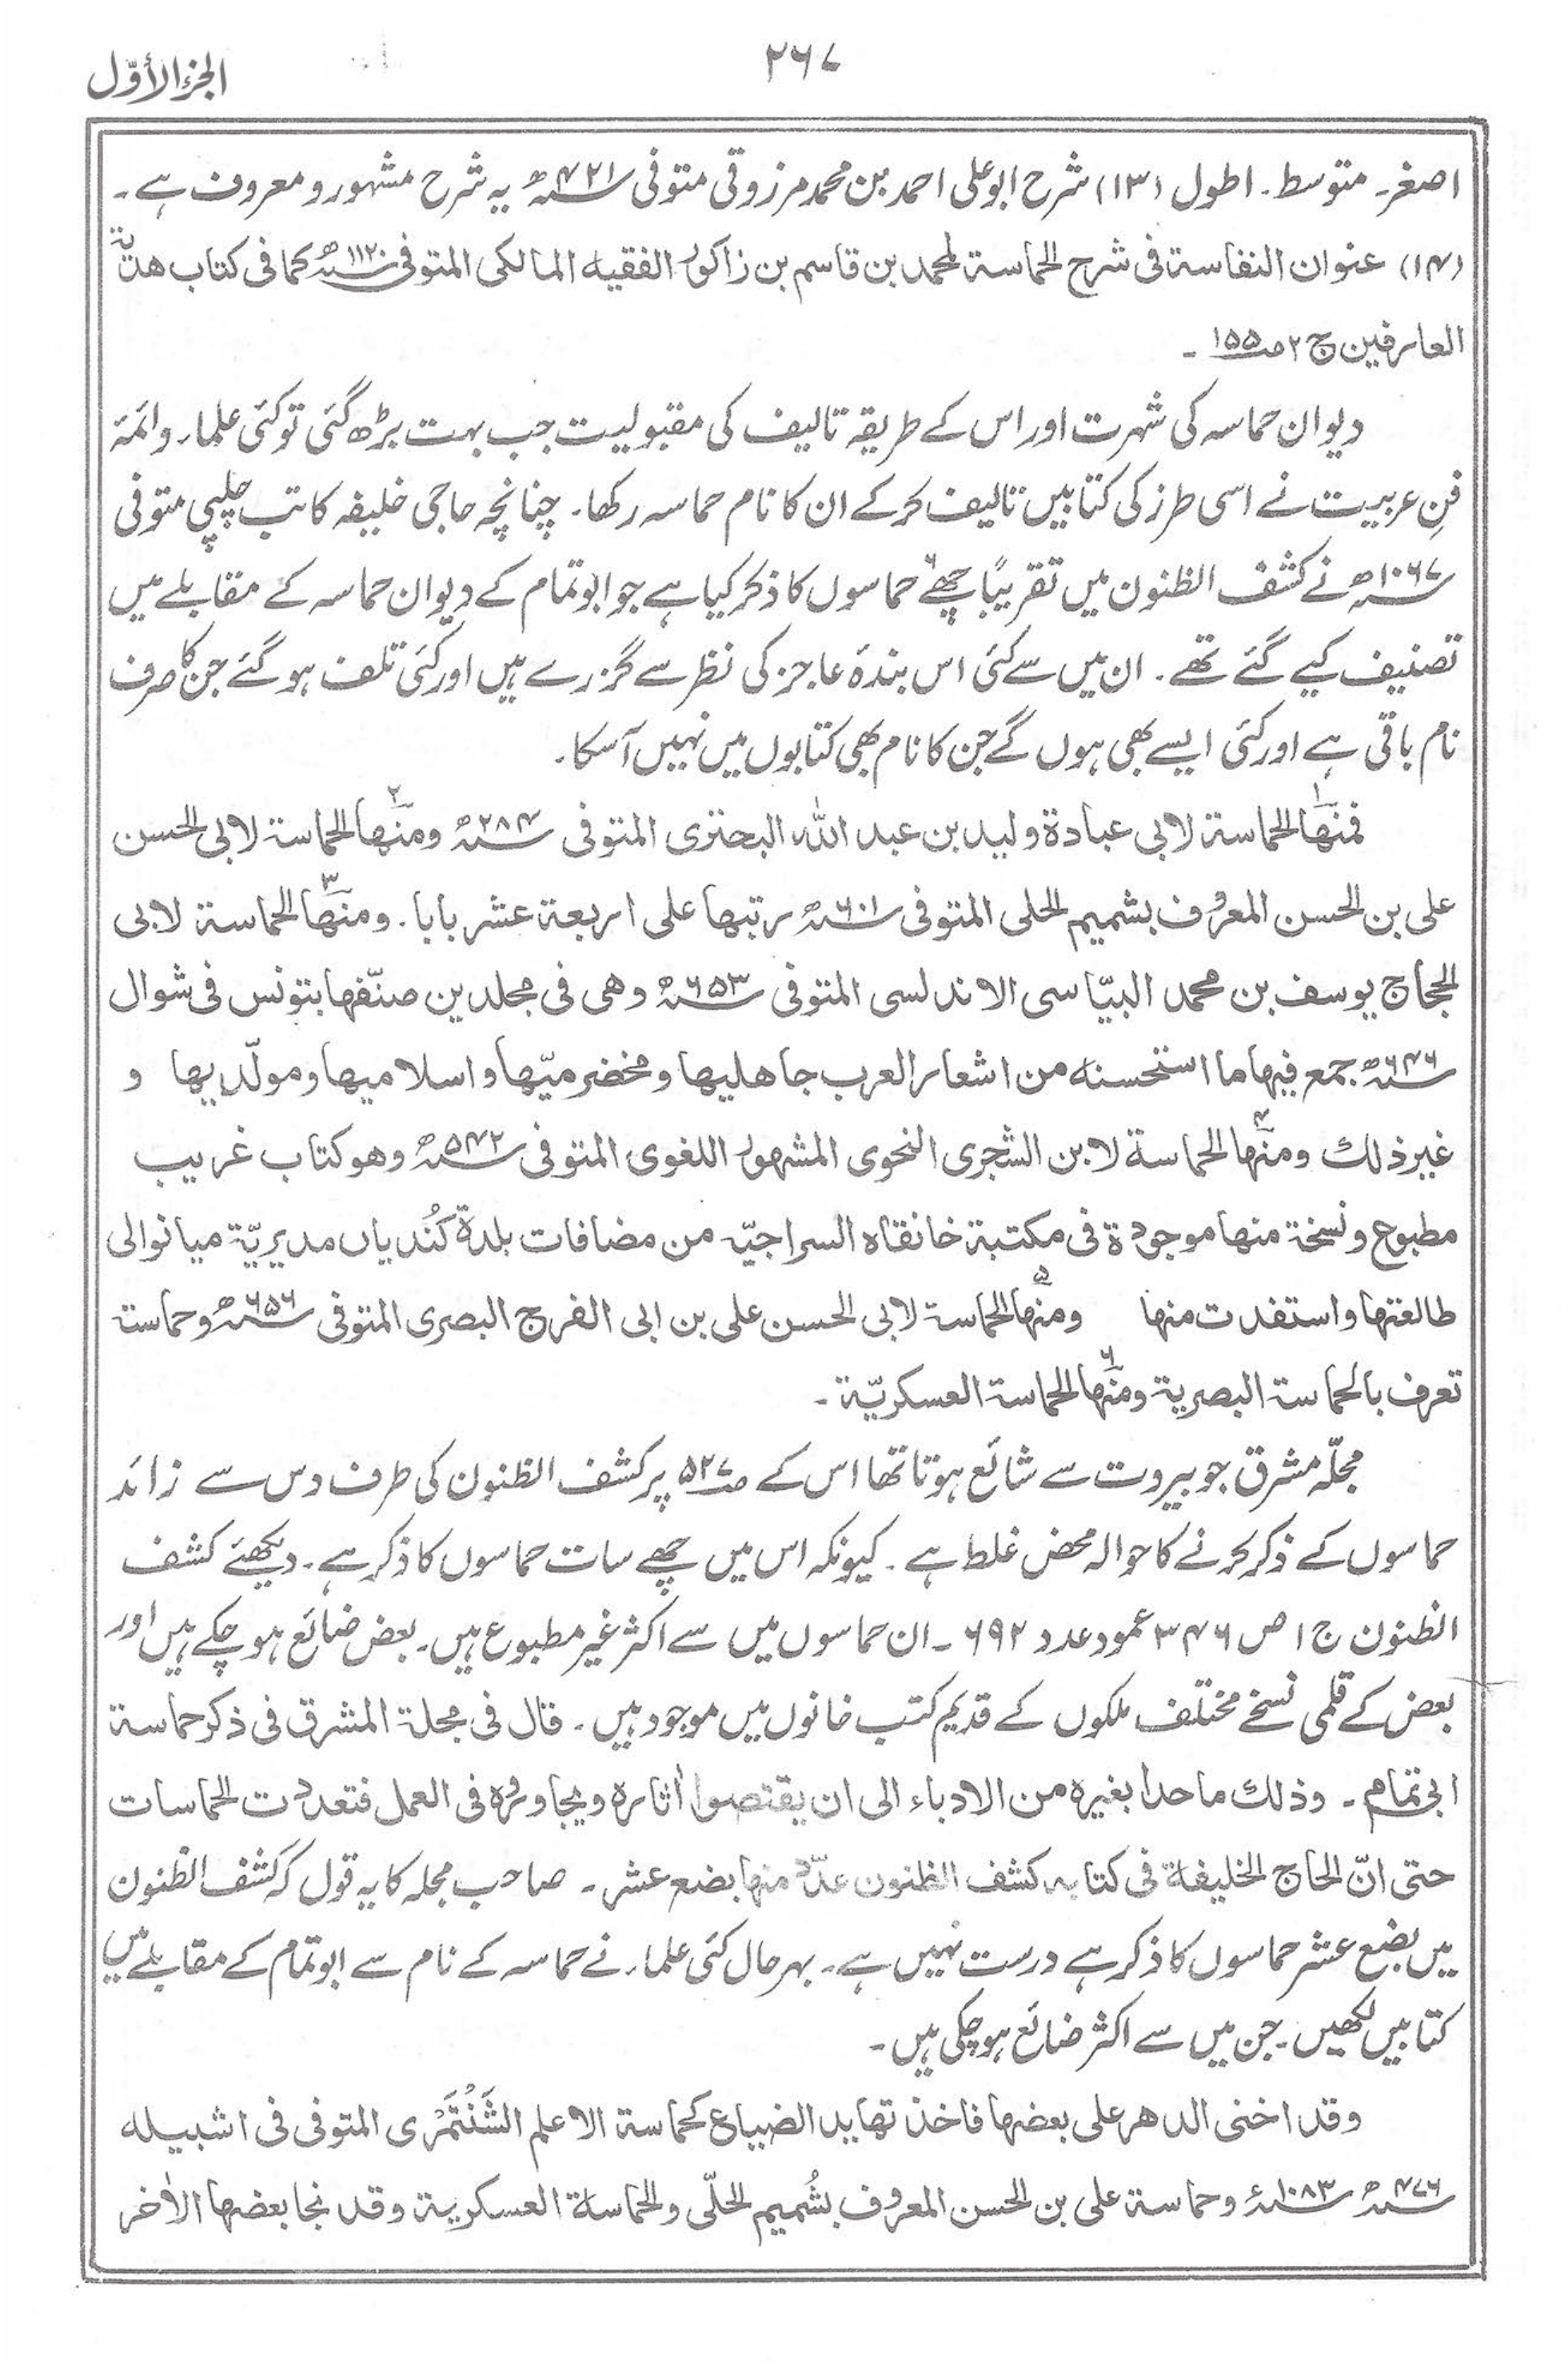 ۲۶۷
الجزء الأوّل
اصغر۔ متوسط۔ اطول (۱۳) شرح ابو علی احمد بن محمد مرزوقی متوفی ۴۲۱ھ یہ شرح مشہور و معروف ہے۔
(۱۴) عنوان النفاسة فی شرح الحماسة لمحمد بن قاسم بن زاکور الفقیه المالکی المتوفی ۱۱۲۰ھ کما فی کتاب هدیّة
العارفین ج ۲ ص ۱۵۵ ۔
دیوان حماسہ کی شہرت اور اس کے طریقہ تالیف کی مقبولیت جب بہت بڑھ گئی تو کئی علماء و ائمۂ
فنِ عربیت نے اسی طرز کی کتابیں تالیف کرکے ان کا نام حماسہ رکھا۔ چنانچہ حاجی خلیفہ کاتب چلپی متوفی
۱۰۶۷ھ نے کشف الظنون میں تقریبًا چھے۶ حماسوں کا ذکر کیا ہے جو ابو تمام کے دیوان حماسہ کے مقابلے میں
تصنیف کیے گئے تھے۔ ان میں سے کئی اس بندۂ عاجز کی نظر سے گزرے ہیں اور کئی تلف ہو گئے جن کا صرف
نام باقی ہے اور کئی ایسے بھی ہوں گے جن کا نام بھی کتابوں میں نہیں آسکا۔
فمنها۱ الحماسة لابی عبادة ولید بن عبد الله البحتری المتوفی ۲۸۴ھ ومنها۲ الحماسة لابی الحسن
علی بن الحسن المعروف بشمیم الحلی المتوفی ۶۰۱ھ رتبها علی اربعة عشر بابا۔ ومنها۳ الحماسة لابی
الحجاج یوسف بن محمد البیّاسی الاندلسی المتوفی ۶۵۳ھ وهی فی مجلدین صنّفها بتونس فی شوال
۶۴۶ھ جمع فیها ما استحسنه من اشعار العرب جاهلیها ومخضرمیّها واسلامیها ومولّدیها و
غیر ذلك ومنها۴ الحماسة لابن الشجری النحوی المشهور اللغوی المتوفی ۵۴۲ھ وهو کتاب غریب
مطبوع ونسخة منها موجودة فی مکتبة خانقاه السراجیّه من مضافات بلدة کُندیاں مدیریّة میانوالی
طالعتها واستفدت منها ومنها۵ الحماسة لابی الحسن علی بن ابی الفرج البصری المتوفی ۶۵۶ھ وحماسته
تعرف بالحماسة البصریة ومنها۶ الحماسة العسکریّة۔
مجلّہ مشرق جو بیروت سے شائع ہوتا تھا اس کے ص ۵۲۷ پر کشف الظنون کی طرف دس سے زائد
حماسوں کے ذکر کرنے کا حوالہ محض غلط ہے۔ کیونکہ اس میں چھے سات حماسوں کا ذکر ہے۔ دیکھئے کشف
الظنون ج ۱ ص ۳۴۶ عمود عدد ۶۹۲ ۔ ان حماسوں میں سے اکثر غیر مطبوع ہیں۔ بعض ضائع ہو چکے ہیں اور
بعض کے قلمی نسخے مختلف ملکوں کے قدیم کتب خانوں میں موجود ہیں۔ قال فی مجلة المشرق فی ذکر حماسة
ابی تمام۔ وذلك ما حدا بغیره من الادباء الی ان یقتصوا اٰثاره ویجاوروه فی العمل فتعددت الحماسات
حتی انّ الحاج الخلیفة فی کتابه کشف الظنون عدّد منها بضع عشر۔ صاحب مجلہ کا یہ قول کہ کشف الظنون
میں بضع عشر حماسوں کا ذکر ہے درست نہیں ہے۔ بہر حال کئی علماء نے حماسہ کے نام سے ابو تمام کے مقابلے میں
کتابیں لکھیں۔ جن میں سے اکثر ضائع ہو چکی ہیں۔
وقد اخنی الدهر علی بعضها فاخذتها ید الضیاع کحماسة الاعلم الشَنْتَمَری المتوفی فی اشبیله
۴۷۶ھ ۱۰۸۳ء وحماسة علی بن الحسن المعروف بشُمیم الحلّی والحماسة العسکریة وقد نجا بعضها الاٰخر